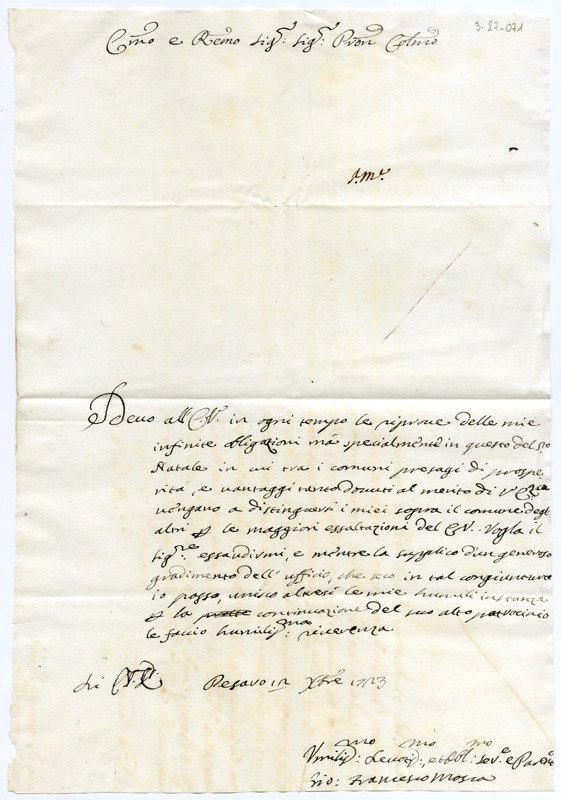 3-27-071
Emo e Remo Sig.r Sig.r Pron Colmo
Devo all'E.V. in ogni tempo le riprove delle mie
infinite obligazioni má specialmente in questo del Sto
Natale in cui tra i comuni presagi di prospe
rità, e vantaggi tanto dovuti al merito di V.
vengano a distinguersi i miei sopra il comune degl'
altri p le maggiori essaltazioni del E.V. Voglia il
Sig.re essaudirmi, e mentre la supplico d'un generoso
gradimento dell'uffizio, che seco in tal congiuntura
io passo, unisco altresi le mie humili instanze
p la continuazione del suo alto patrocinio
le faccio humilis.ma riverenza.
di E.V. Pesaro 12 Xbre 1723
Umilis.mo Devot.mo et obl.mo Ser.e
Gio: Francesco Mosca